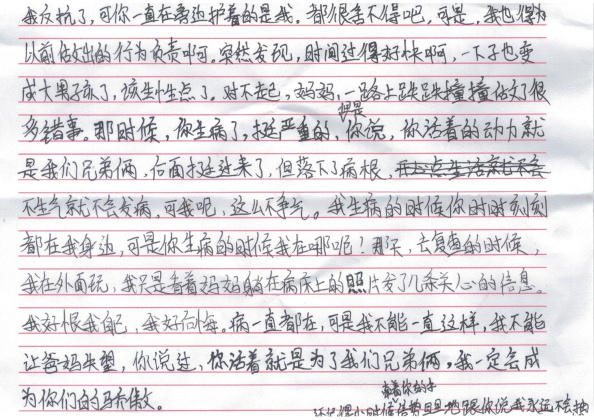 我反抗了，可你一直在旁边护着的是我。都很舍不得吧，可是，我也得为
以前做出的行为负责啊。突然发现，时间过得好快啊，一下子也变
成大男孩了，该懂点了。对不起，妈妈，一路上跌跌撞撞做了很
多错事。那时候，你生病了，挺严重的，但是你说，你活着的动力就
是我们兄弟俩，后面挺过来了，但落下了病根，
不生气就不会发病，可我呢，这么不争气。我生病的时候你时时刻刻
都在我身边，可是你生病的时候我在哪呢？那天，去复查的时候，
我在外面玩，我只是看着妈妈躺在病床上的照片发了几条关心的信息。
我好恨我自己，我好后悔。病一直都在，可是我不能一直这样，我不能
让爸妈失望，你说过，你活着就是为了我们兄弟俩。我一定会成
为你们的骄傲。
还记得小时候牵着你的手信誓旦旦地跟你说我永远不会抽